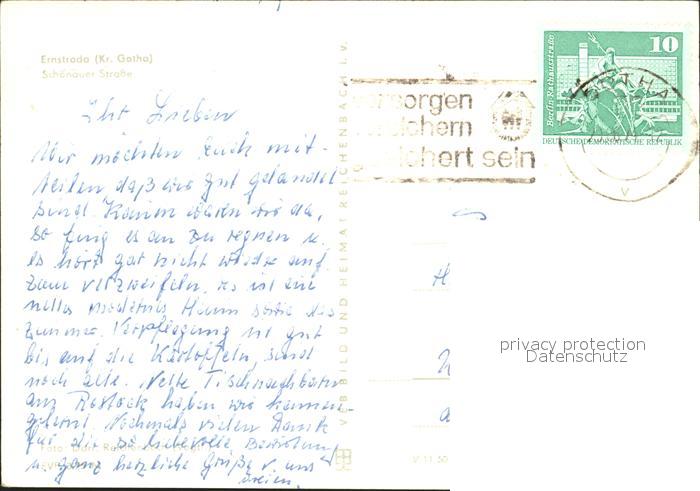 Ernstroda (Kr. Gotha)
Schönauer Straße
Ihr Lieben
Wir möchten Euch mit-
teilen daß wir gut gelandet
sind. Kaum waren wir da,
so fing es an zu regnen u.
es hört gar nicht wieder auf
zum verzweifeln, es ist ein
nettes modernes Haus sowie das
Zimmer. Verpflegung ist gut
bis auf die Kartoffeln, sind
noch alte. Nette Tischnachbarn
aus Rostock haben wir kennen-
gelernt. Nochmals vielen Dank
für die so liebevolle Bewirtung
u. ganz herzliche Grüße v. uns
zweien.
VEB BILD UND HEIMAT REICHENBACH I. V.
V 11 50
vorsorgen
versichern
gesichert sein
GOTHA
10
Berlin-Rathausstraße
DEUTSCHE DEMOKRATISCHE REPUBLIK
privacy protection
Datenschutz